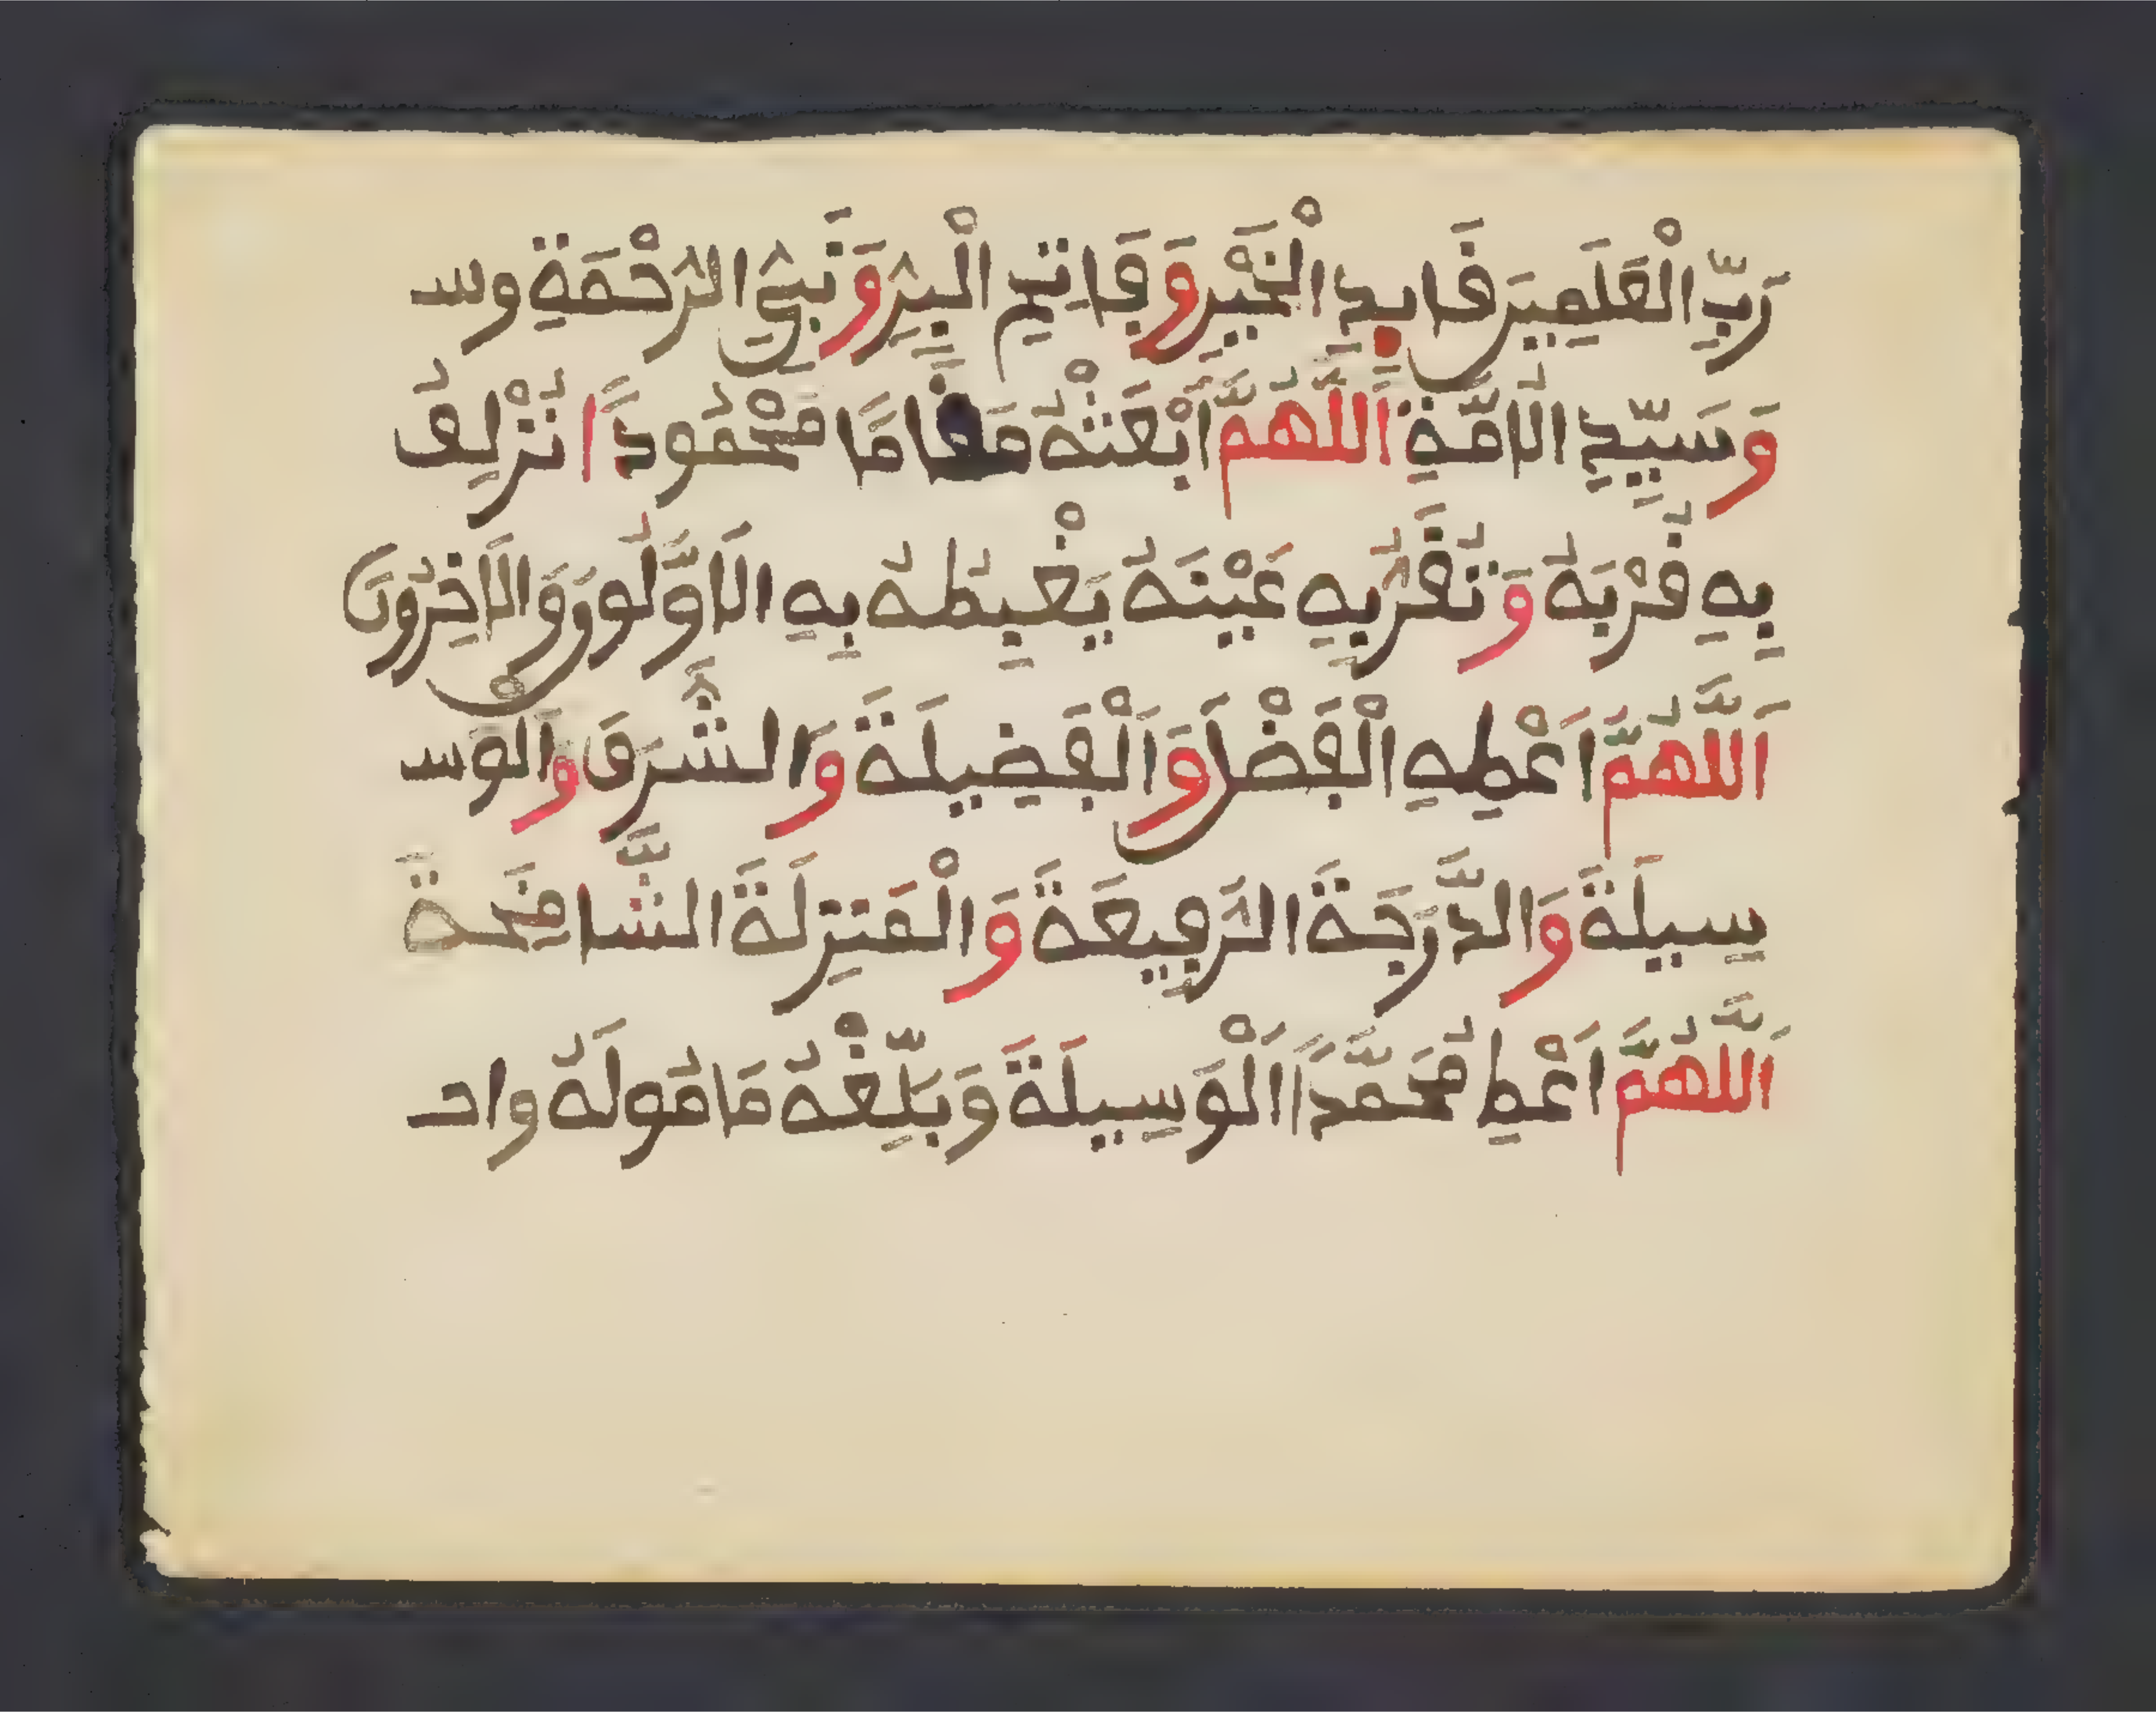 رَبِّ الْعَلَمِينَ قَايِدِ الْخَيْرِ وَفَاتِحِ الْبِرِّ وَنَبِيِّ الرَّحْمَةِ وس
وَسَيِّدِ الْامَّةِ اَللَّهُمَّ ابْعَثْهُ مَقَامًا مَحْمُودًا تُزْلِفُ
بِهِ قُرْبَهُ وَتُقِرُّ بِهِ عَيْنَهُ يَغْبِطُهُ بِهِ الَاوَّلُونَ وَالَاخِرُونَ
اَللَّهُمَّ اَعْطِهِ الْفَضْلَ وَالْفَضِيلَةَ وَالشَّرَفَ وَالْوَس
سِيلَةَ وَالدَّرَجَةَ الرَّفِيعَةَ وَالْمَنزِلَةَ الشَّامِخَةَ
اَللَّهُمَّ اَعْطِ مُحَمَّدًا اَلْوَسِيلَةَ وَبَلِّغْهُ مَامُولَهُ واحـ